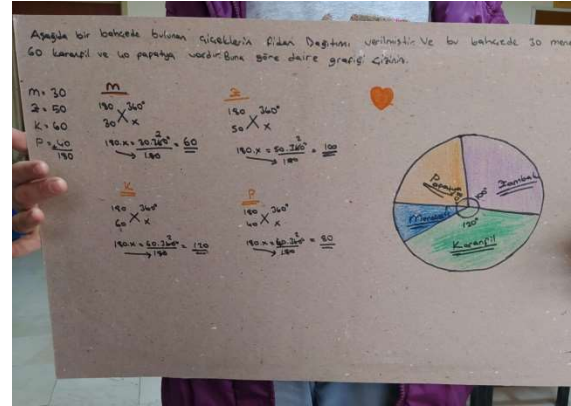 Aşağıda bir bahçede bulunan çiçeklerin fidan Dağıtımı verilmiştir. Ve bu bahçede 30 mene
60 karanfil ve 40 papatya vardır. Buna göre daire grafiği çiziniz.
M = 30
Z = 50
K = 60
P = 40
180
M
180 360°
30 x
180.x = 30.360° = 60
180
Z
180 360°
50 x
180.x = 50.360° = 100
180
K
180 360°
60 x
180.x = 60.360° = 120
180
P
180 360°
40 x
180.x = 40.360° = 80
180
Papatya
Zambak
100°
120°
Karanfil